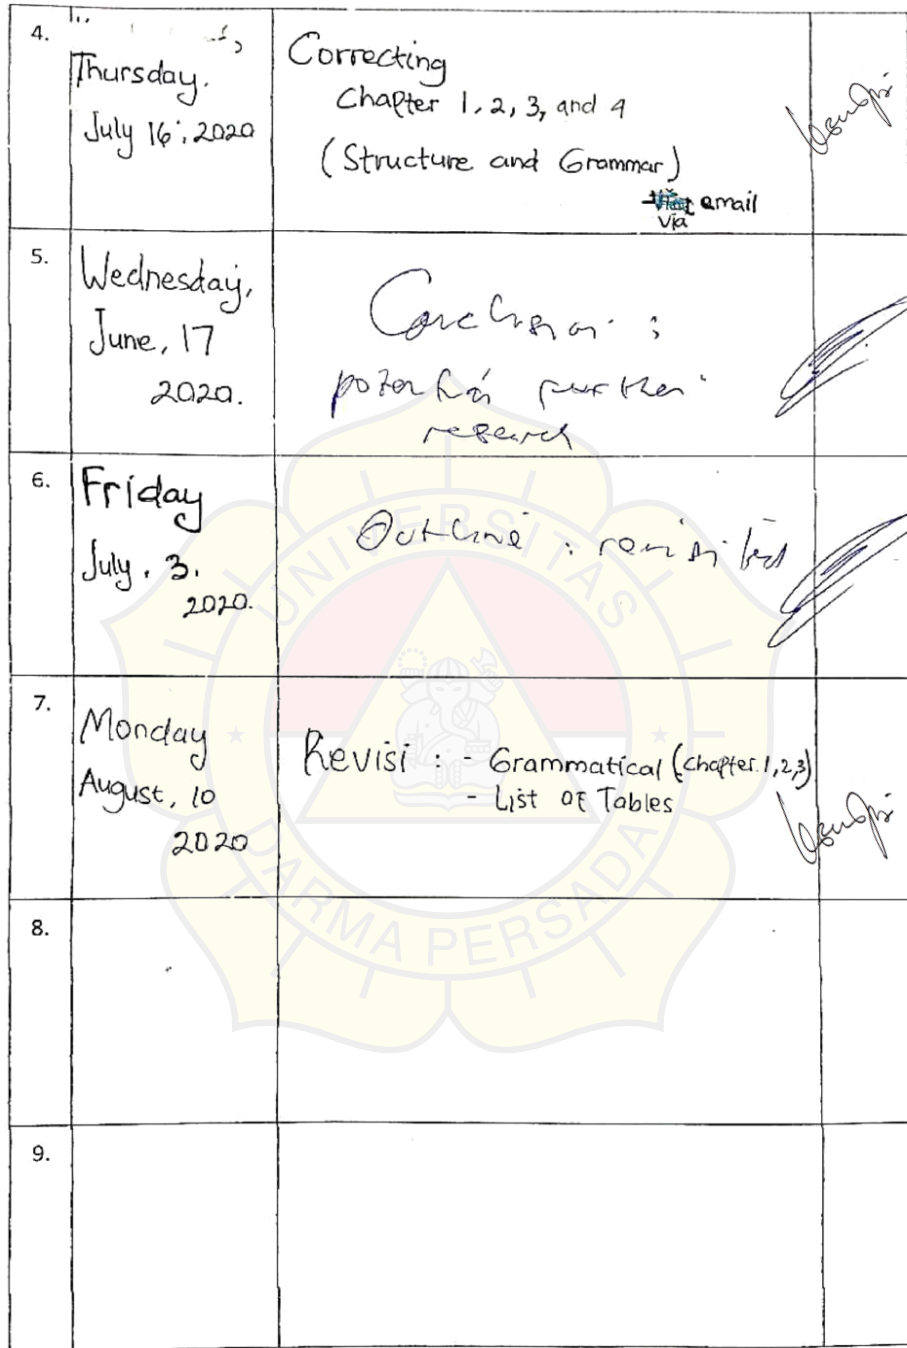 4.
Thursday.
July 16, 2020
Correcting
Chapter 1, 2, 3, and 4
(Structure and Grammar)
email
via
5.
Wednesday,
June, 17
2020.
Conclusion :
potential further
research
6.
Friday
July . 3.
2020.
Outline : revisited
7.
Monday
August, 10
2020
Revisi : - Grammatical (Chapter 1,2,3)
- List of Tables
8.
9.
UNIVERSITAS
DARMA PERSADA